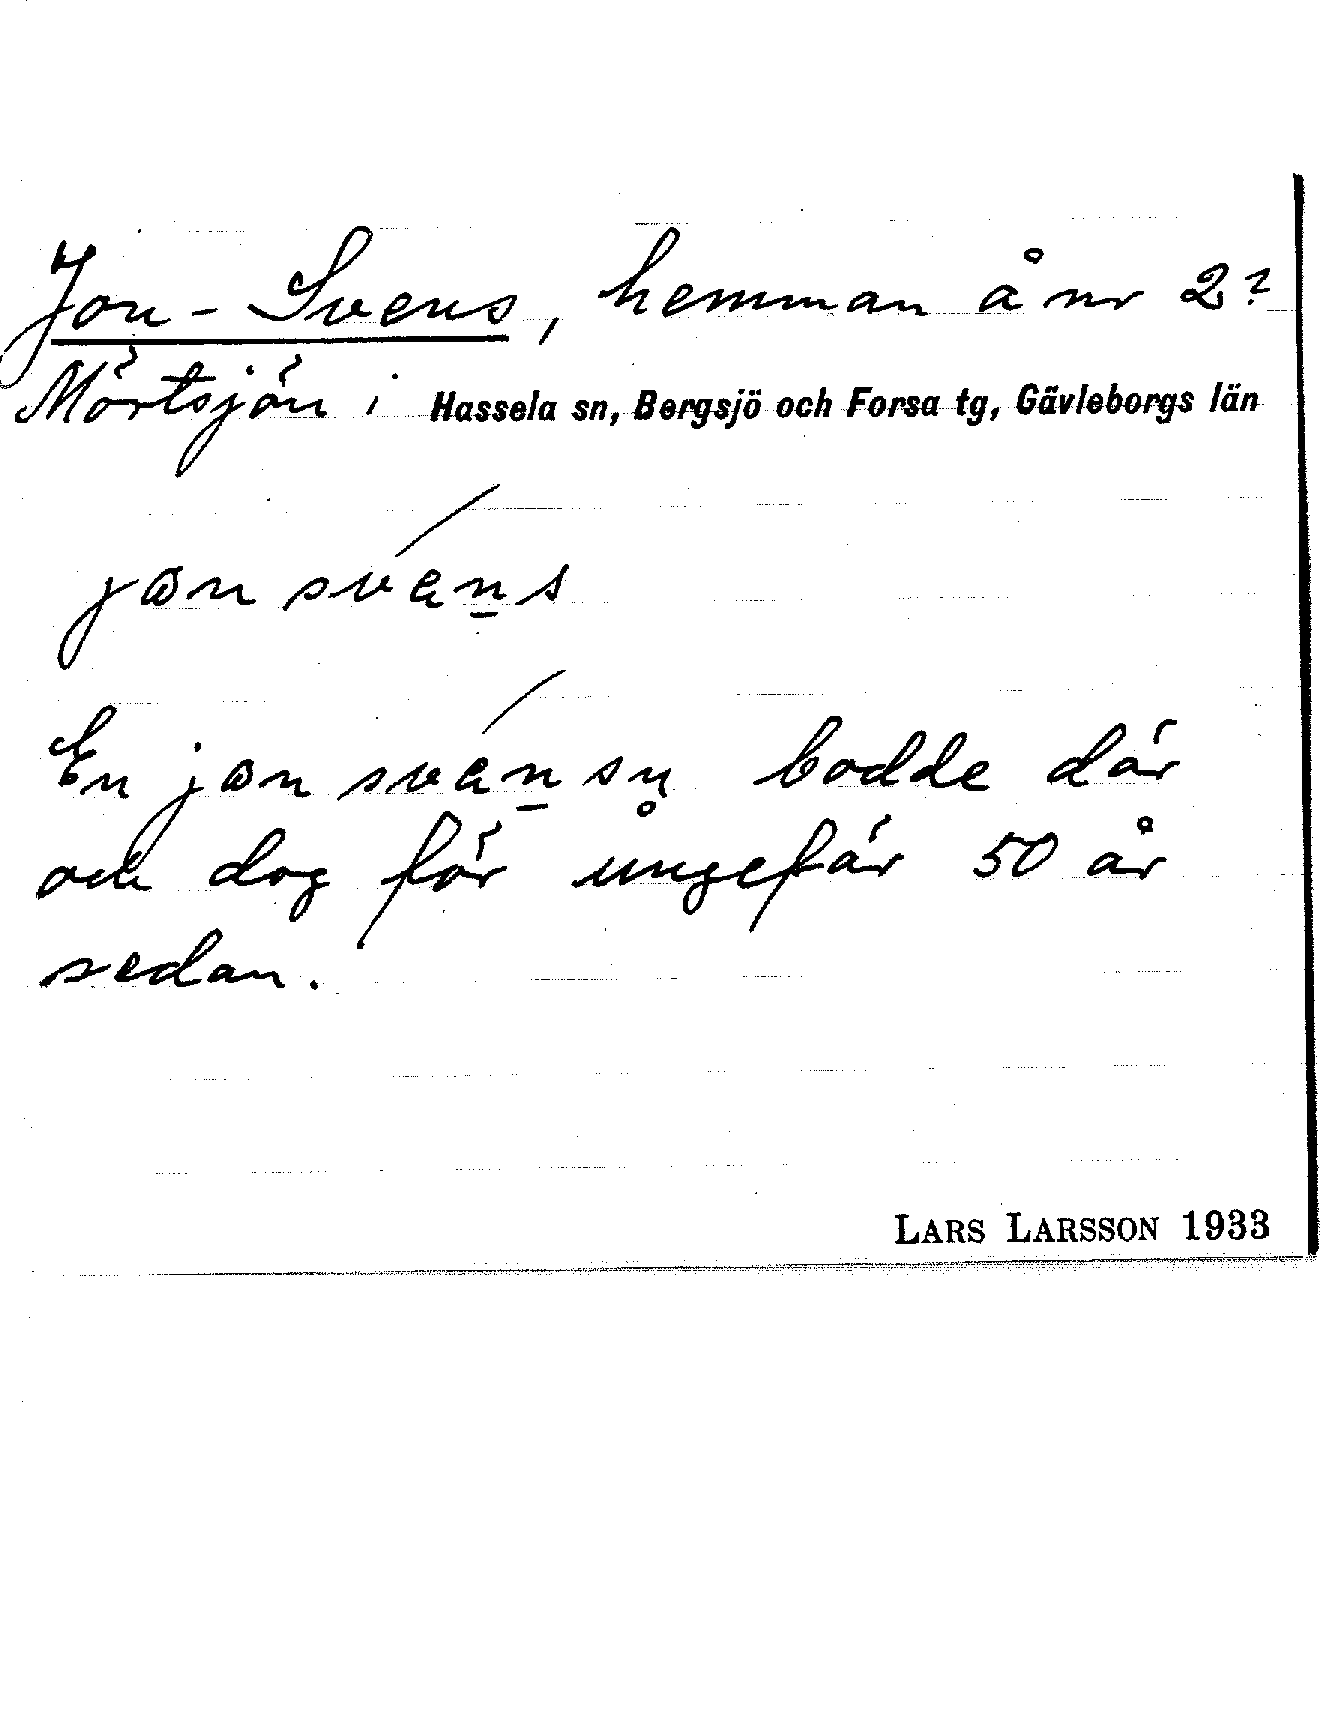 Jon-Svens, hemman å nr 2?
Mörtsjön i Hassela sn, Bergsjö och Forsa tg, Gävleborgs län
jɷn svéṉs
En jɷn svéṉsn̥ bodde där
och dog för ungefär 50 år
sedan.
LARS LARSSON 1933